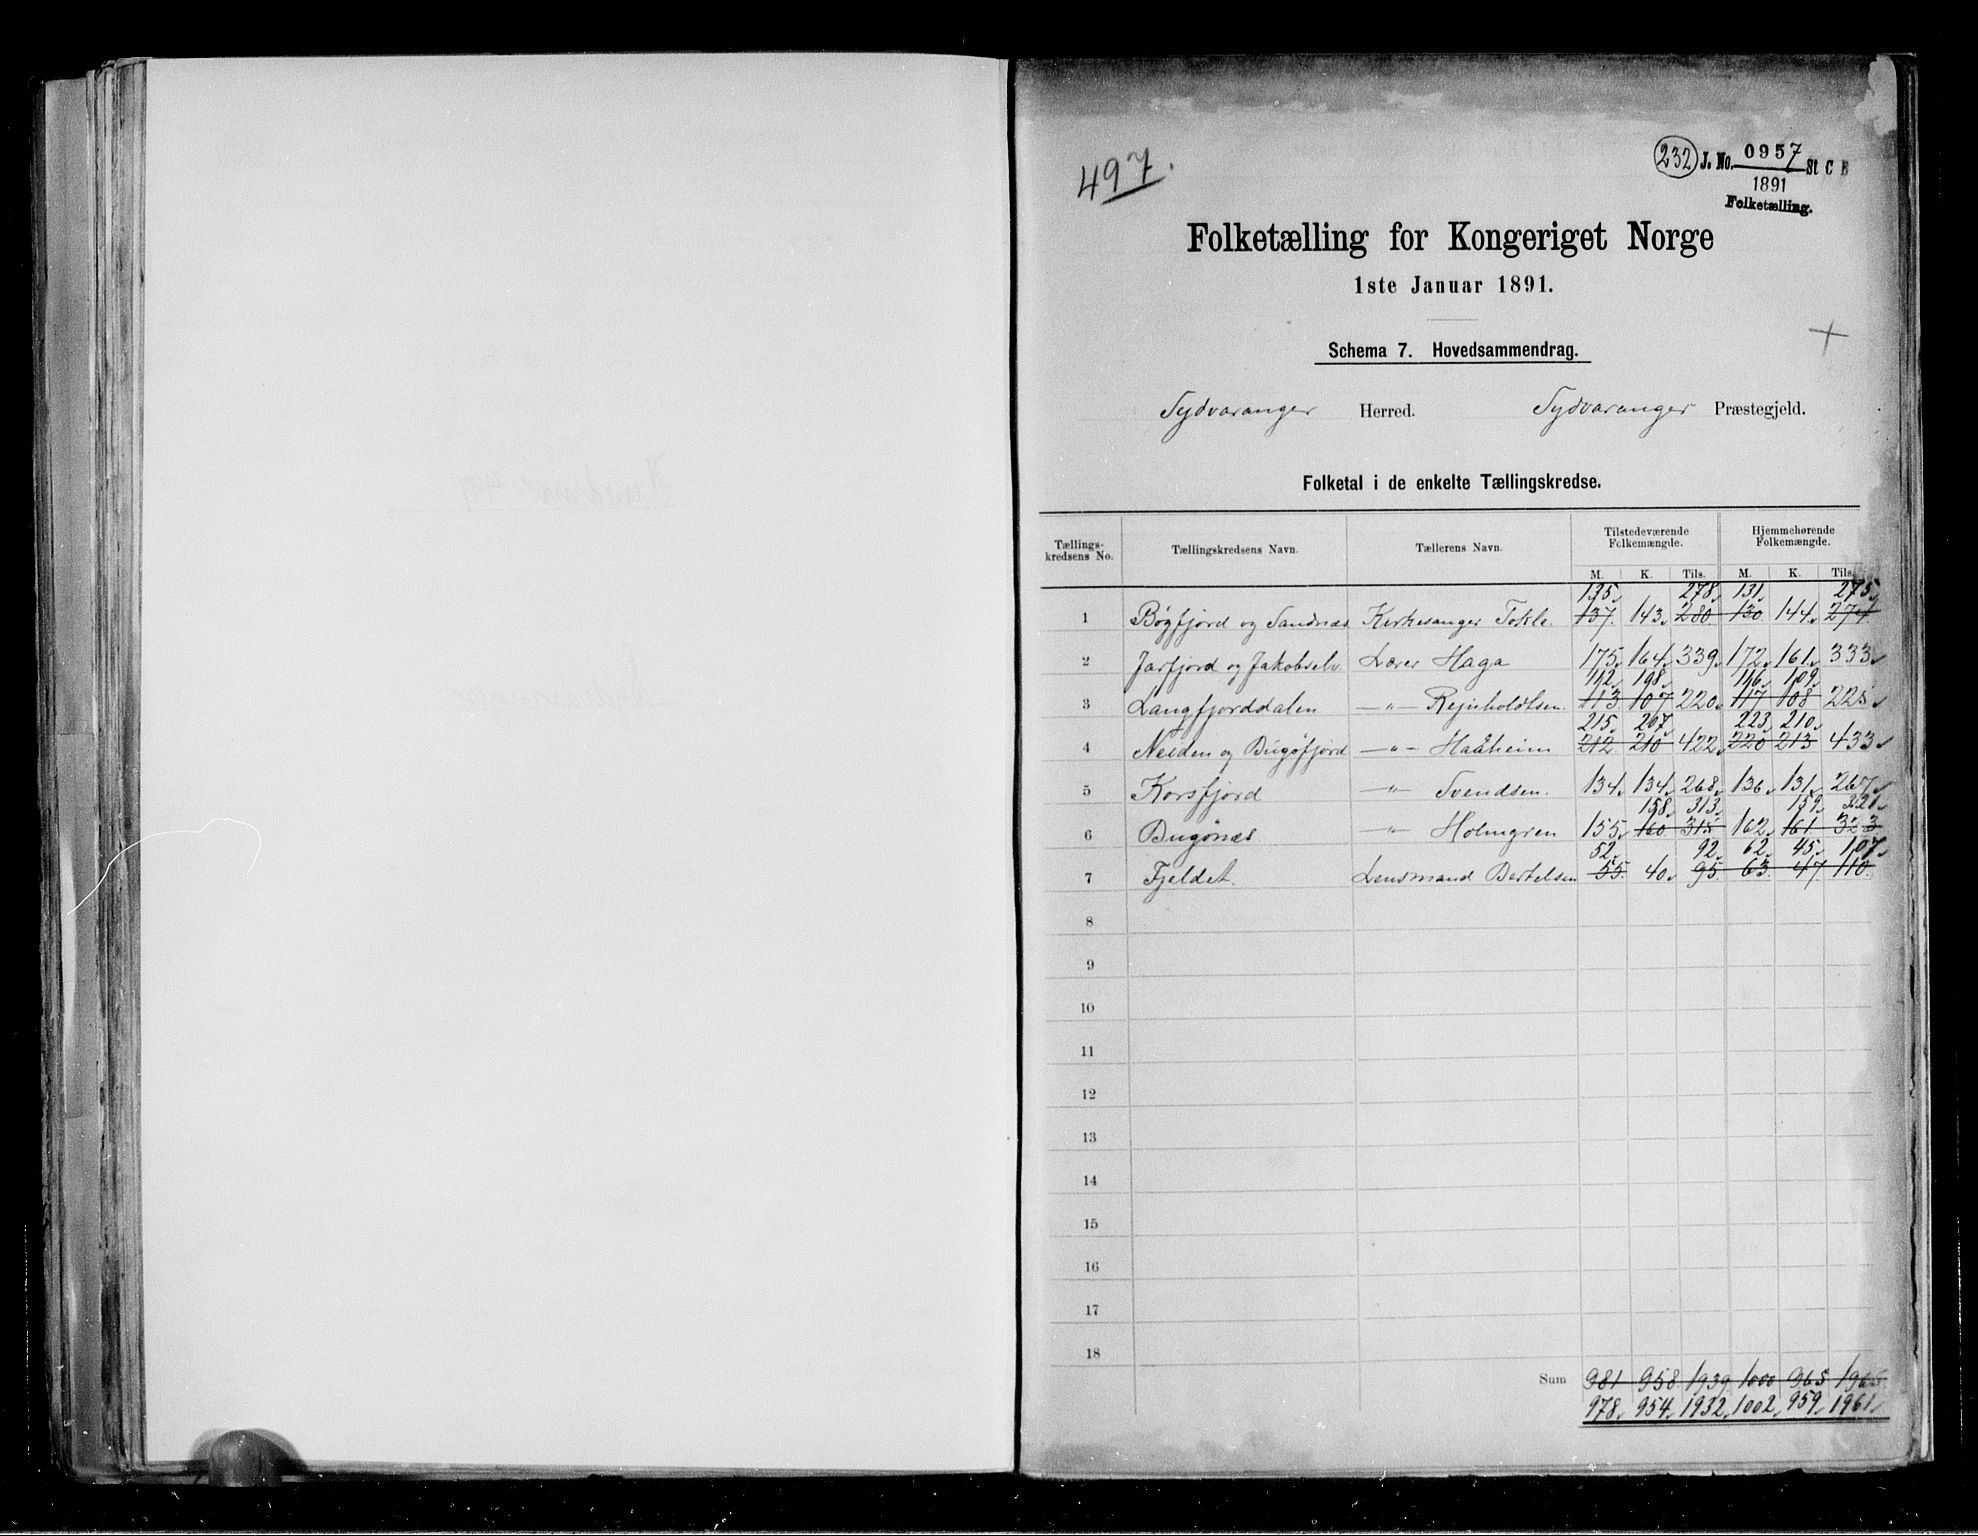 497.
232 J. No. 0957 St C B
1891
Folketælling.
Folketælling for Kongeriget Norge
1ste Januar 1891.
Schema 7. Hovedsammendrag.
Sydvaranger Herred. Sydvaranger Præstegjeld.
Folketal i de enkelte Tællingskredse.
Tællings-kredsens No. Tællingskredsens Navn. Tællerens Navn. Tilstedeværende Folkemængde. Hjemmehørende Folkemængde.
M. K. Tils. M. K. Tils.
135 278 131 275
1 Bøgfjord og Sandnæs Kirkesanger Tokle 137 143 280 130 144 274
2 Jarfjord og Jakobselv Lærer Haga 175 164 339 172 161 333
112 198 116 109
3 Langfjorddalen —"— Rejnholdtsen 113 107 220 117 108 225
215 207 223 210
4 Neiden og Bugøfjord —"— Haåheim 212 210 422 220 213 433
5 Korsfjord —"— Svendsen. 134 134 268 136 131 267
158 313 159 321
6 Bugönæs —"— Holmgren 155 160 315 162 161 323
52 92 62 45 107
7 Fjeldet. Lensmand Bertelsen 55 40 95 63 47 110
8
9
10
11
12
13
14
15
16
17
18
Sum 981 958 1939 1000 965 1965
978 954 1932 1002 959 1961